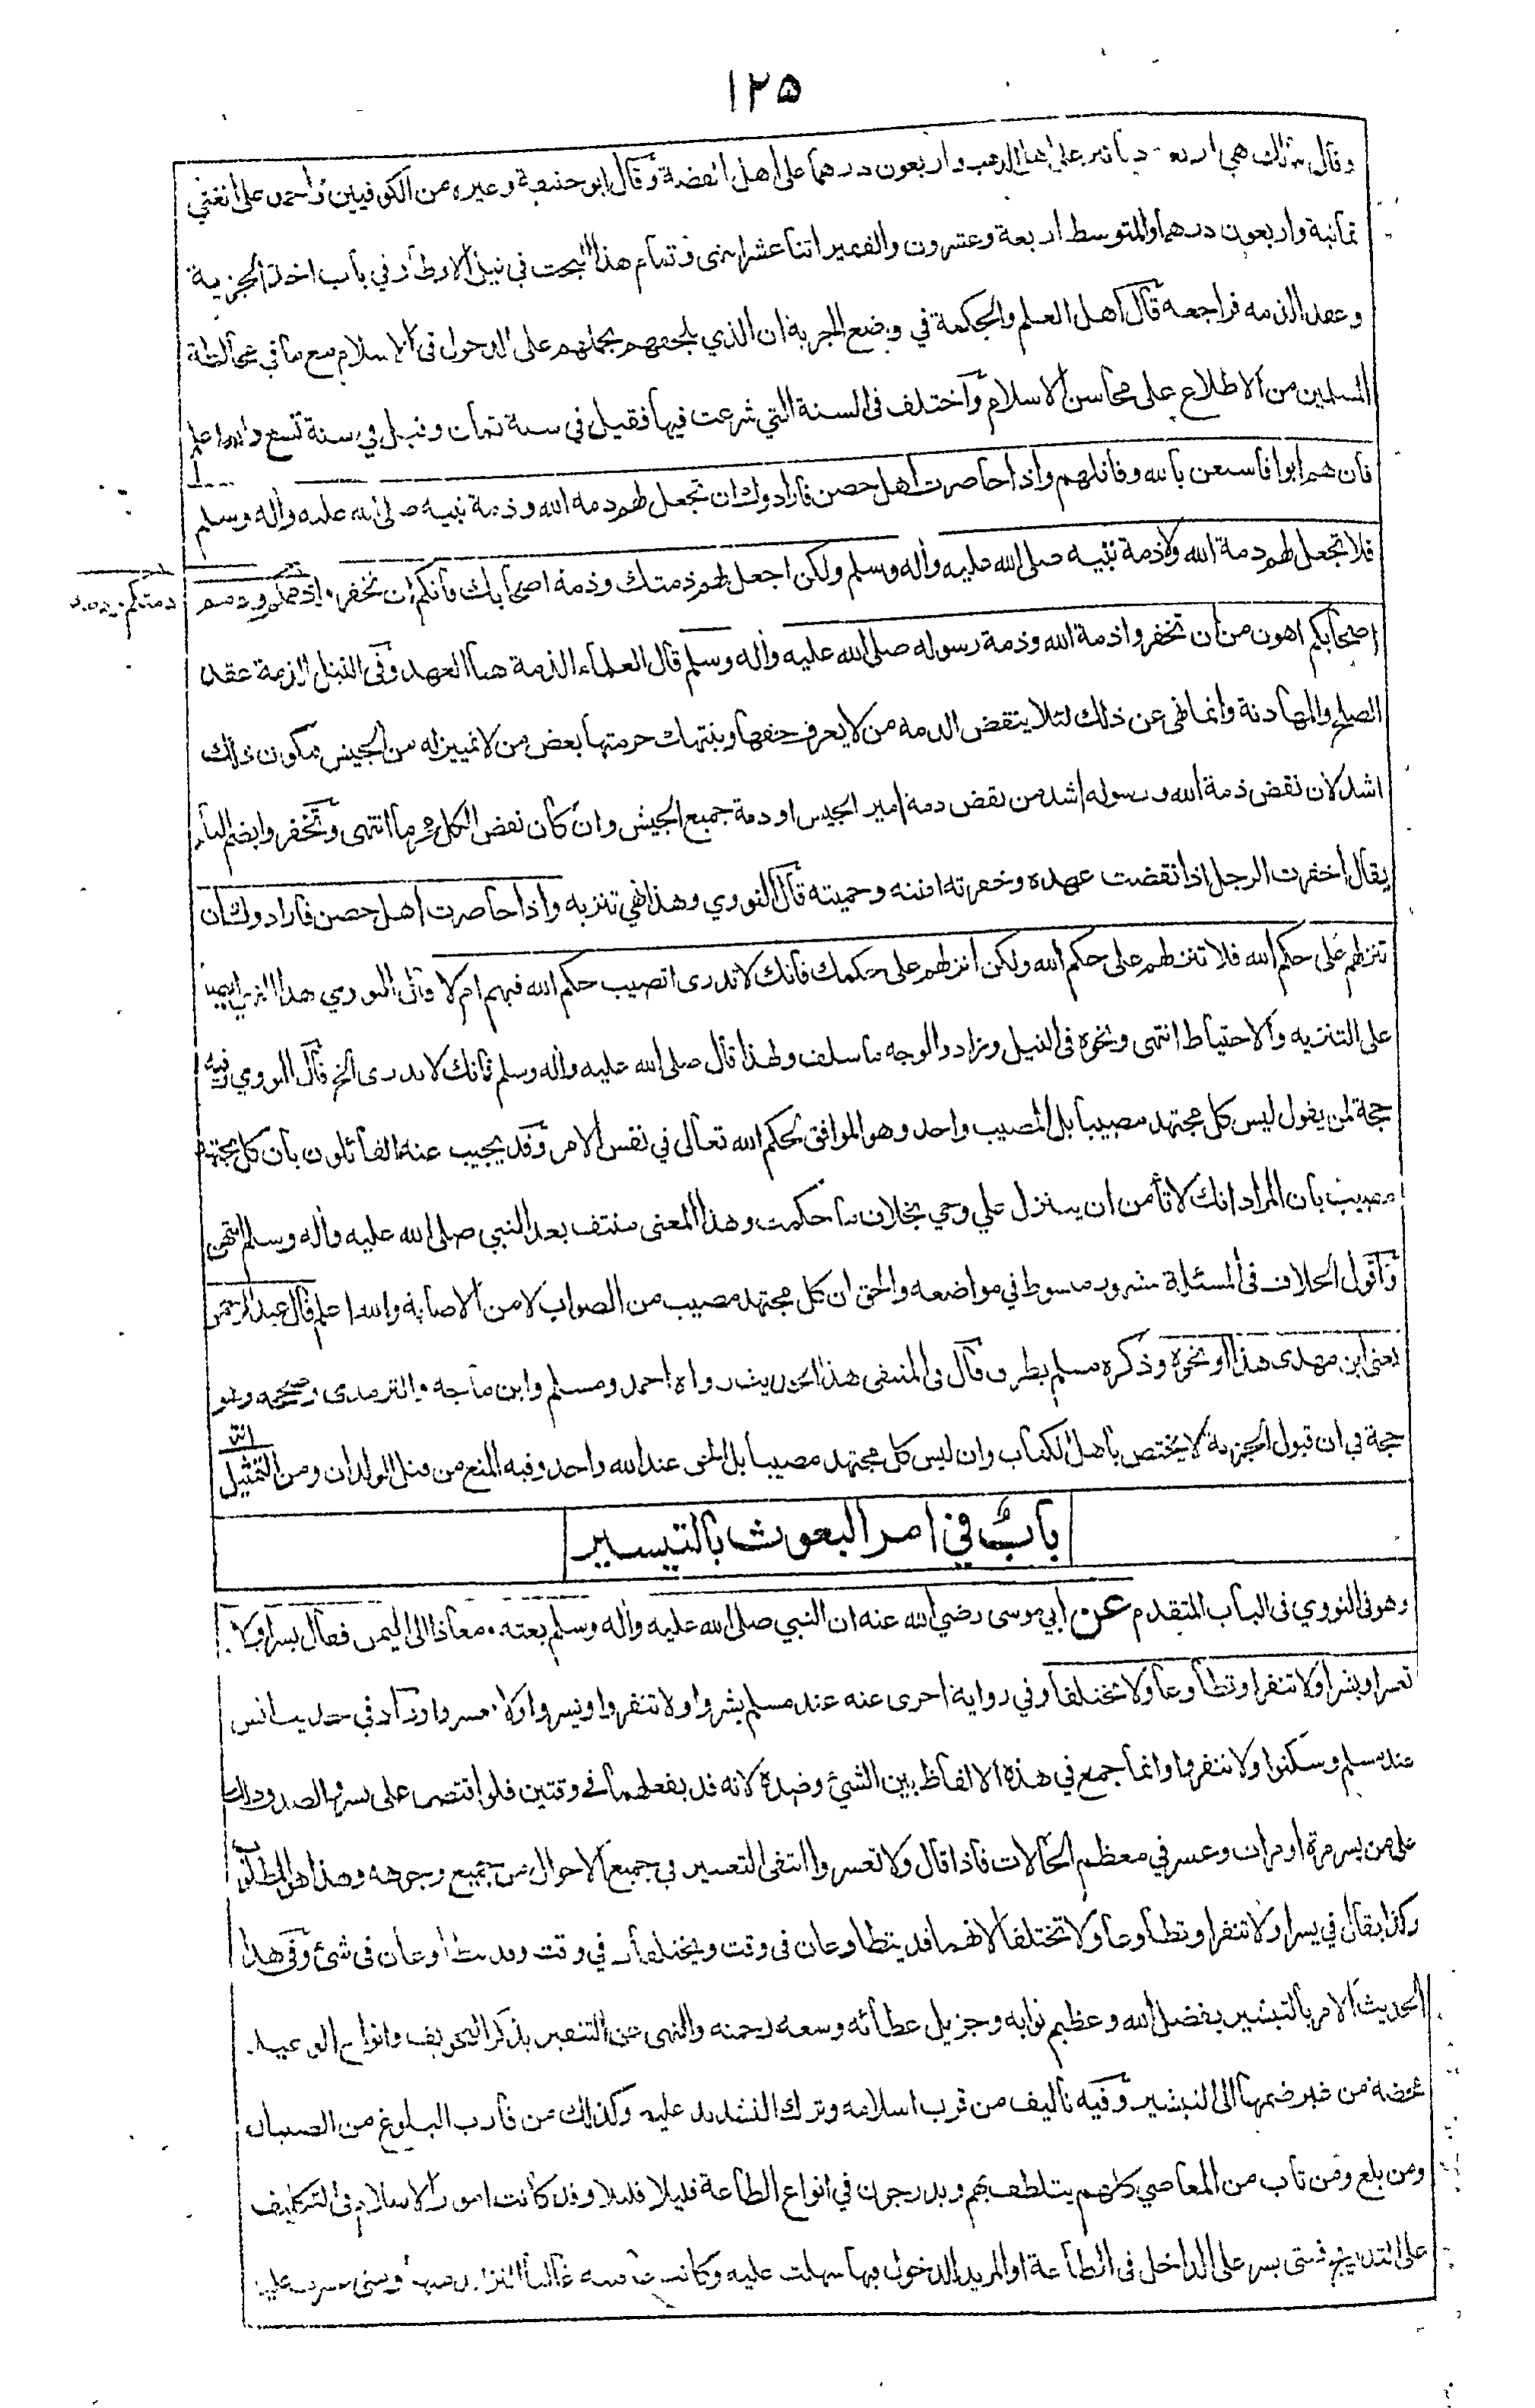 ١٢٥
وقال مالك هي اربعة دنانير على اهل الذهب واربعون درهما على اهل الفضة وقال ابو حنيفة وغيره من الكوفيين واحمد على الغني
ثمانية واربعون درهما والمتوسط اربعة وعشرون والفقير اثنا عشر انتهى وتمام هذا البحث في نيل الاوطار في باب اخذ الجزية
وعقد الذمه فراجعه قال اهل العلم والحكمة في وضع الجزية ان الذي يلحقهم يحملهم على الدخول في الاسلام مع ما في مخالطة
المسلمين من الاطلاع على محاسن الاسلام واختلف في السنة التي شرعت فيها فقيل في سنة ثمان وقيل في سنة تسع والله اعلم
فان هم ابوا فاستعن بالله وقاتلهم واذا حاصرت اهل حصن فارادوك ان تجعل لهم ذمه الله وذمة نبيه صلى الله عليه واله وسلم
فلا تجعل لهم ذمة الله ولا ذمة نبيه صلى الله عليه واله وسلم ولكن اجعل لهم ذمتك وذمة اصحابك فانكم ان تخفروا ذممكم وذمم
ذمتكم
اصحابكم اهون من ان تخفروا ذمة الله وذمة رسوله صلى الله عليه واله وسلم قال العلماء الذمة هنا العهد وفي النيل الذمة عقد
الصلح والمهادنة وانما نهى عن ذلك لئلا ينقض الذمه من لا يعرف حقها وينتهك حرمتها بعض من لا تمييز له من الجيش فكون ذلك
اشد لان نقض ذمة الله ورسوله اشد من نقض ذمة امير الجيش او ذمة جميع الجيش وان كان نقض الكل محرما انتهى وتخفروا بضم التاء
يقال اخفرت الرجل اذا نقضت عهده وخفرته امنته وحميته قال النووي وهذا نهي تنزيه واذا حاصرت اهل حصن فارادوك ان
تنزلهم على حكم الله فلا تنزلهم على حكم الله ولكن انزلهم على حكمك فانك لا تدرى اتصيب حكم الله فيهم ام لا قال النووي هذا النهي ايضا
على التنزيه والاحتياط انتهى ونحوه في النيل وزاد والوجه ما سلف ولهذا قال صلى الله عليه واله وسلم فانك لا تدرى الخ قال النووي وفيه
حجة لمن يقول ليس كل مجتهد مصيبا بل المصيب واحد وهو الموافق لحكم الله تعالى في نفس الامر وقد يجيب عنه القائلون بان كل مجتهد
مصيب بان المراد انك لا تأمن ان ينزل علي وحي بخلاف ما حكمت وهذا المعنى منتف بعد النبي صلى الله عليه واله وسلم انتهى
واقول الخلاف في المسئلة مشهور مبسوط في مواضعه والحق ان كل مجتهد مصيب من الصواب لا من الاصابة والله اعلم قال عبد الرحمن
يعني ابن مهدى هذا او نحوه وذكره مسلم بطرق قال في المنتقى هذا الحديث رواه احمد ومسلم وابن ماجه والترمذى وصححه وهو
حجة في ان قبول الجزية لا يختص باهل الكتاب وان ليس كل مجتهد مصيبا بل الحق عند الله واحد وفيه المنع من قتل الولدان ومن التمثيل
انتهى
باب في امر البعوث بالتيسير
وهو في النووي في الباب المتقدم عن ابي موسى رضي الله عنه ان النبي صلى الله عليه واله وسلم بعثه ومعاذا الى اليمن فقال يسرا ولا
تعسرا وبشرا ولا تنفرا وتطاوعا ولا تختلفا وفي رواية اخرى عنه عند مسلم بشروا ولا تنفروا ويسروا ولا تعسروا وزاد في حديث انس
عند مسلم وسكنوا ولا تنفروا وانما جمع في هذه الالفاظ بين الشئ وضده لانه قد يفعلهما في وقتين فلو اقتصر على يسروا لصدق ذلك
على من يسر مرة او مرات وعسر في معظم الحالات فاذا قال ولا تعسروا انتفى التعسير في جميع الاحوال من جميع وجوهه وهذا هو المطلوب
وكذا يقال في يسرا ولا تنفرا وتطاوعا ولا تختلفا لانهما قد يتطاوعان في وقت ويختلفان في وقت وقد يتطاوعان في شئ وفي هذا
الحديث الامر بالتبشير بفضل الله وعظيم ثوابه وجزيل عطائه وسعه رحمته والنهى عن التنفير بذكر التخويف وانواع الوعيد
محضه من غير ضمها الى التبشير وفيه تأليف من قرب اسلامه وترك التشديد عليه وكذلك من قارب البلوغ من الصبيان
ومن بلغ ومن تاب من المعاصي كلهم يتلطف بهم ويدرجون في انواع الطاعة قليلا قليلا وقد كانت امور الاسلام في التكليف
على التدريج فمتى يسر على الداخل في الطاعة او المريد الدخول فيها سهلت عليه وكانت عاقبته غالبا التزايد منها ومتى عسرت عليه